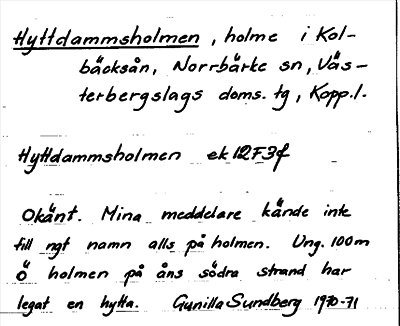 Hyttdammsholmen, holme i Kol-
bäcksån, Norrbärke sn, Väs-
terbergslags doms. tg, Kopp.l.
Hyttdammsholmen ek 12F3f
Okänt. Mina meddelare kände inte
till ngt namn alls på holmen. Ung. 100m
Ö holmen på åns södra strand har
legat en hytta. Gunilla Sundberg 1970-71